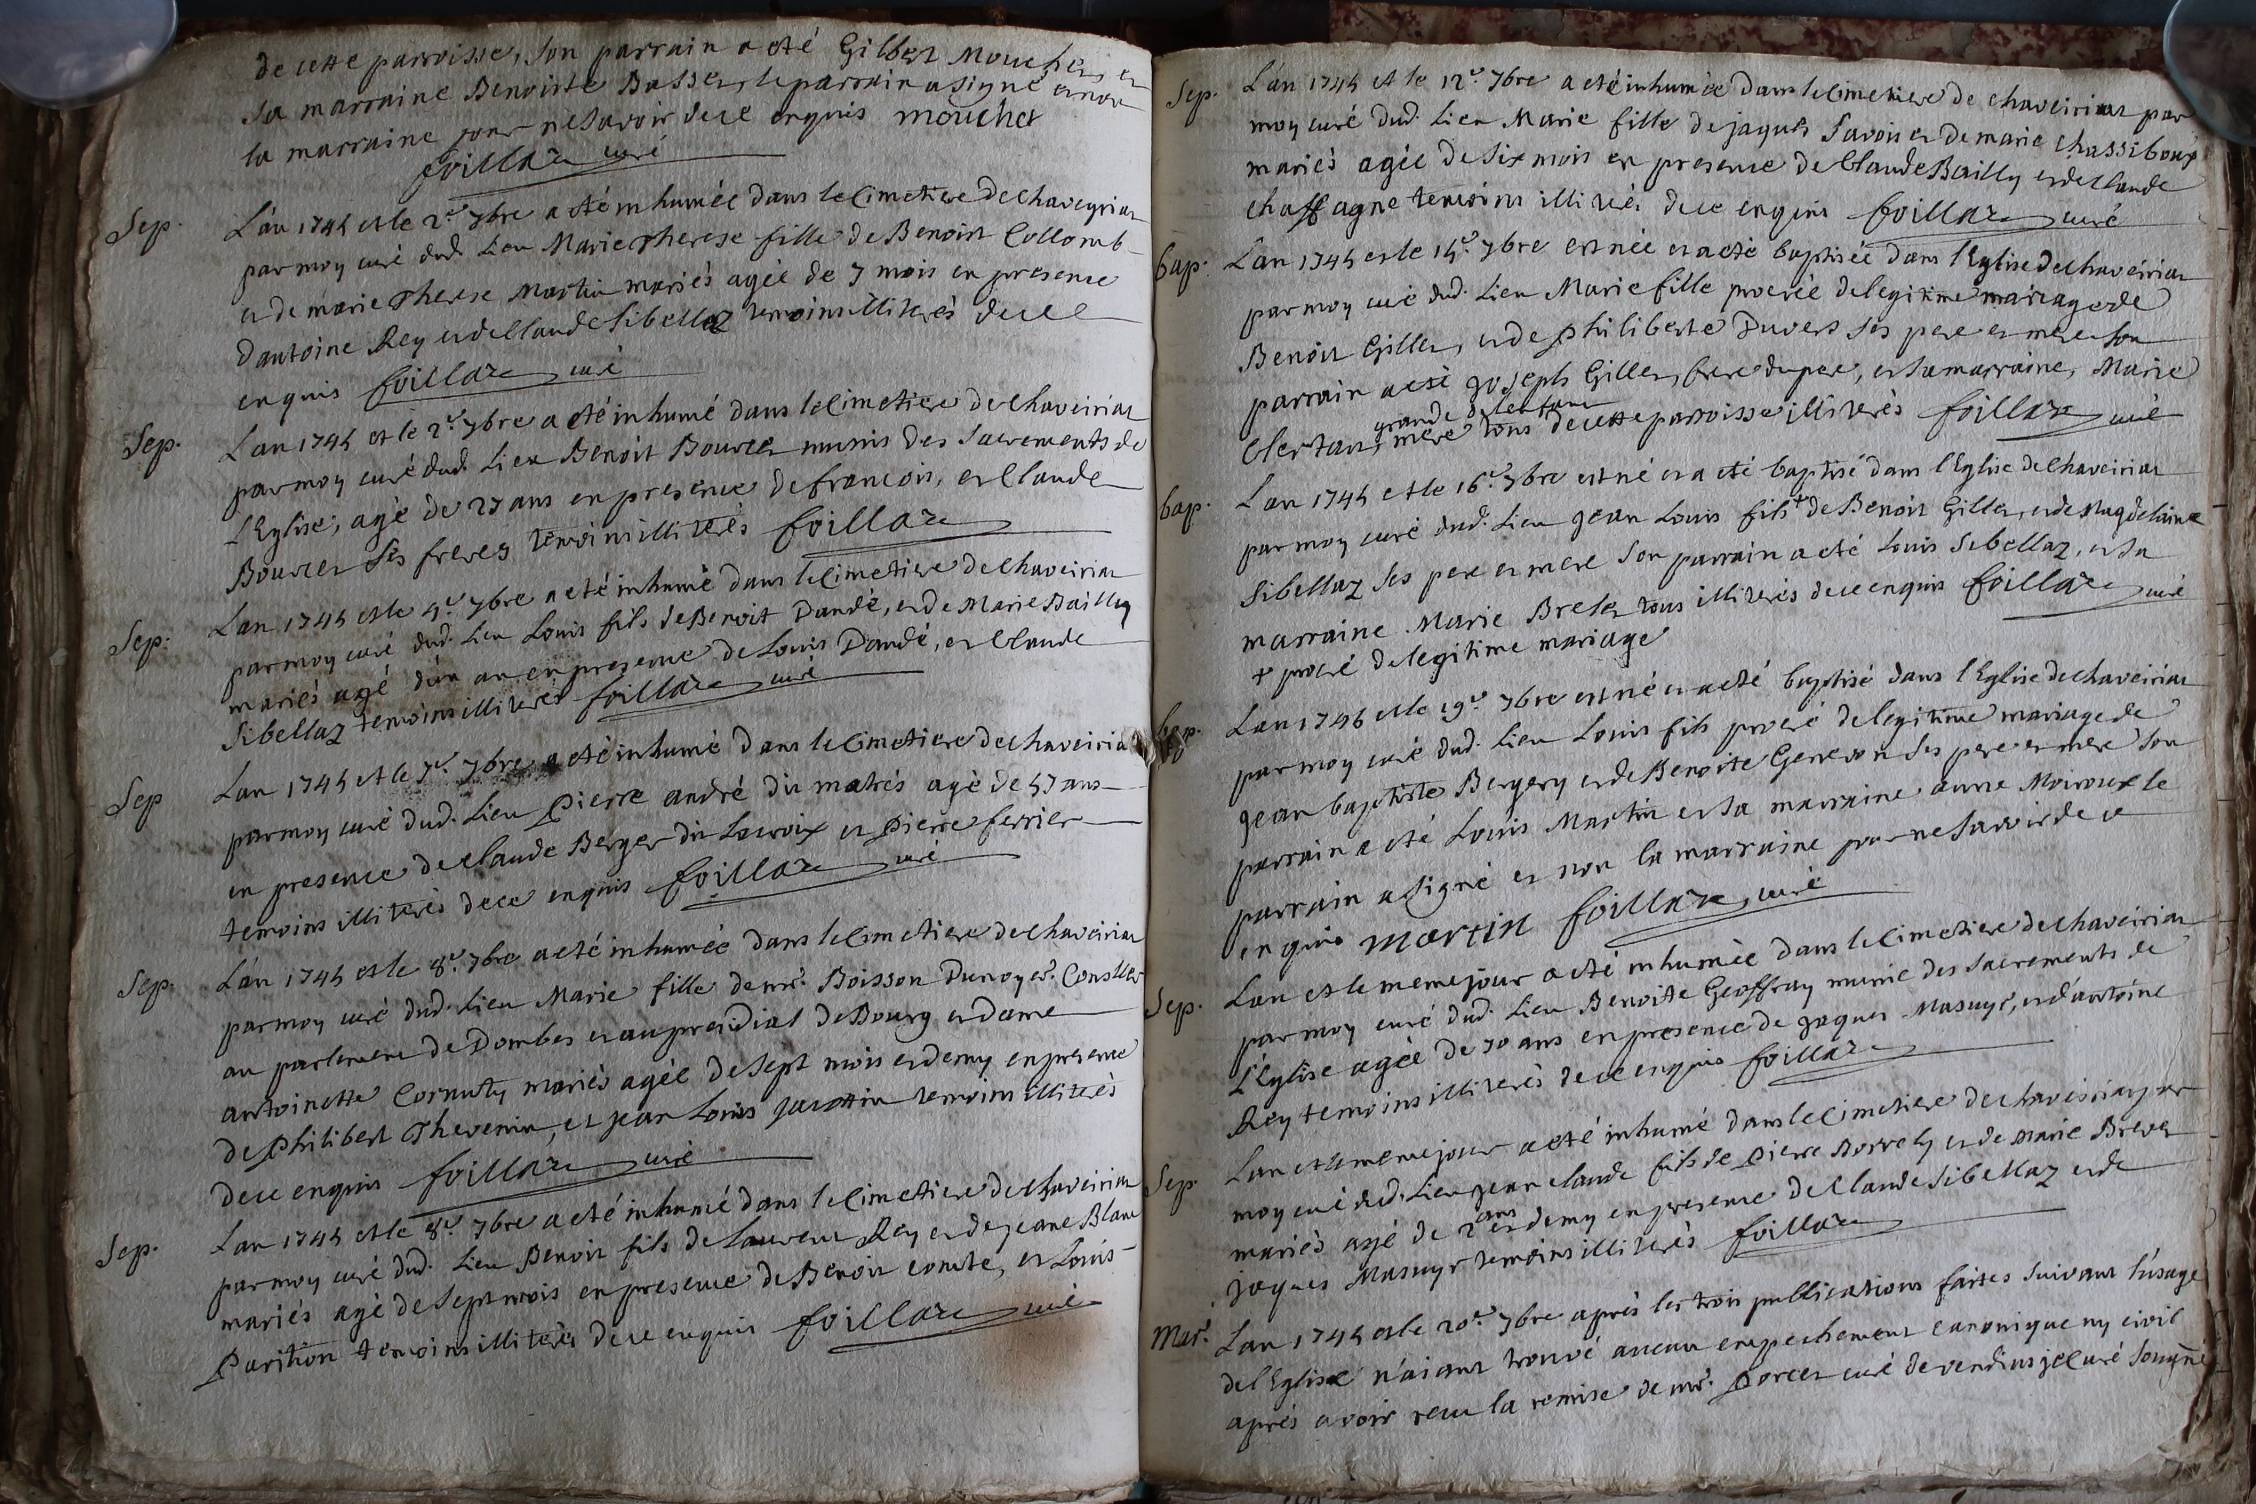 de cette parroisse, son parrain a eté Gilbert Mouchet et
sa marraine Benoiste Basset le parrain a signé et non
la marraine pour ne savoir de ce enquis mouchet
foillaz curé
Sep. L'an 1745 et le 2e. 7bre a eté inhumée dans le Cimetiere de Chaveyriat
par moy curé dud. Lieu Marie Therese fille de Benoist Collomb
et de marie Therese Martin mariés agée de 7 mois en presence
d'antoine Rey et de Claude Sibellaz temoins illiterés de ce
enquis foillaz curé
Sep. L'an 1745 et le 2e. 7bre a eté inhumé dans le Cimetiere de Chaveiriat
par moy curé dud. Lieu Benoit Bourcet munis des Sacrements de
l'Eglise, agé de 27 ans en presence de francois, et Claude
Bourcet ses freres temoins illiterés foillaz
Sep. L'an 1745 et le 4e. 7bre a eté inhumé dans le Cimetiere de Chaveiriat
par moy curé dud. Lieu Louis fils de Benoit Dandé, et de Marie Bailly
mariés agé d'un an en presence de Louis Dandé, et Claude
Sibellaz temoins illiterés foillaz curé
Sep L'an 1745 et le 7e. 7bre a eté inhumé dans le Cimetiere de Chaveiria
par moy curé dud. Lieu Pierre andré dit matrés agé de 57 ans
en presence de Claude Berger dit Lacroix et Pierre ferrier
temoins illiterés de ce enquis foillaz curé
Sep. L'an 1745 et le 8e. 7bre a eté inhumée dans le Cimetiere de Chaveiriat
par moy curé dud. Lieu Marie fille de mr. Boisson Dunoyer. Conseller
au parlement de Dombes et au presidial de Bourg et dame
antoinette Cornuty mariés agée de sept mois et demy en presence
de Philibert Thevenin, et Jean Louis Jacottin temoins illiterés
de ce enquis foillaz curé
Sep. L'an 1745 et le 8e. 7bre a eté inhumé dans le Cimetiere de Chaveiriat
par moy curé dud. Lieu Benoit fils de Laurent Rey et de jeane Blanc
mariés agé de sept mois en presence de Benoit comte, et Louis
Parition temoins illiterés de ce enquis foillaz curé
Sep. L'an 1745 et le 12e. 7bre a eté inhumée dans le Cimetiere de chaveiriat par
moy curé dud. Lieu Marie fille de jaques Savoi et de marie Chassiboux
mariés agée de six mois en presence de Claude Bailly et de Claude
chaffagne temoins illiterés de ce enquis foillaz curé
bap. L'an 1745 et le 15e. 7bre est née et a eté baptisée dans l'Eglise de Chaveiriat
par moy curé dud. Lieu Marie fille procrée de legitime mariage de
Benoit Gillet, et de Philiberte Duvers ses pere et mere son
parrain a eté joseph Gillet, frere du pere, et sa marraine, Marie
grande de l'enfant
Clertant, mere tous de cette parroisse illiterés foillaz curé
bap. L'an 1745 et le 16e. 7bre est né et a eté baptisé dans l'Eglise de Chaveiriat
par moy curé dud. Lieu Jean Louis fils + de Benoit Gillet, et de Magdelaine
Sibellaz ses pere et mere son parrain a eté Louis Sibellaz, et sa
marraine Marie Bretet tous illiterés de ce enquis foillaz curé
+ procré de legitime mariage
bap. L'an 1745 et le 19e. 7bre est né et a eté baptisé dans l'Eglise de Chaveiriat
par moy curé dud. Lieu Louis fils procré de legitime mariage de
Jean baptiste Bergery et de Benoite Genevon ses pere et mere son
parrain a eté Louis Martin et sa marraine anne Moiroux le
parrain a signé et non la marraine pour ne savoir de ce
enquis martin foillaz, curé
Sep. L'an et le meme jour a eté inhumée dans le Cimetiere de Chaveiriat
par moy curé dud. Lieu Benoite Geoffray munie des Sacrements de
l'Eglise agée de 70 ans en presence de jaques Masuyr, et d'antoine
Rey temoins illiterés de ce enquis foillaz
Sep. L'an et le meme jour a eté inhumé dans le Cimetiere de Chaveiriat par
moy curé dud. Lieu Jean claude fils de Pierre Borrely et de Marie Brevet
mariés agé de 2 ans et demy en presence de Claude Sibellaz et de
jaques Masuyr temoins illiterés foillaz
Mar. L'an 1745 et le 20e. 7bre aprés les trois publications faites suivant l'usage
de l'Eglise n'aiant trouvé aucun empechement canonique ny civil
aprés avoir recu la remise de mr. Porcet curé de vendins je Curé sousigné